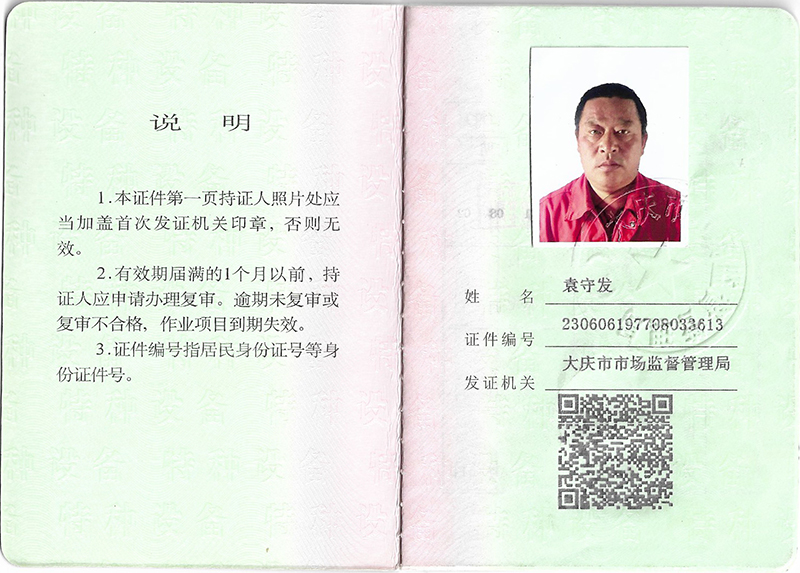 说 明
1.本证件第一页持证人照片处应
当加盖首次发证机关印章，否则无
效。
2.有效期届满的1个月以前，持
证人应申请办理复审。逾期未复审或
复审不合格，作业项目到期失效。
3.证件编号指居民身份证号等身
份证件号。
姓 名 袁守发
证件编号 230606197708033613
发证机关 大庆市市场监督管理局